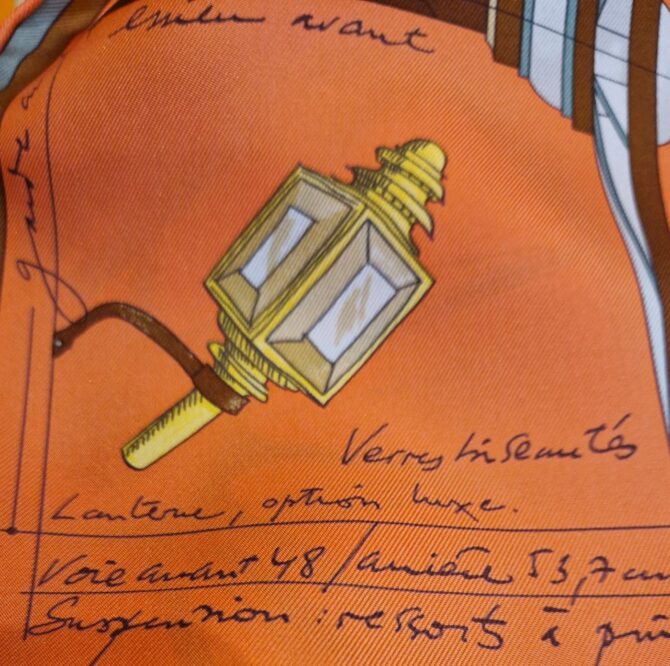 essieu avant
garde
Verres biseautés
Lanterne, option luxe.
Voie avant 48 / arrière 53,7 cm
Suspension : ressorts à